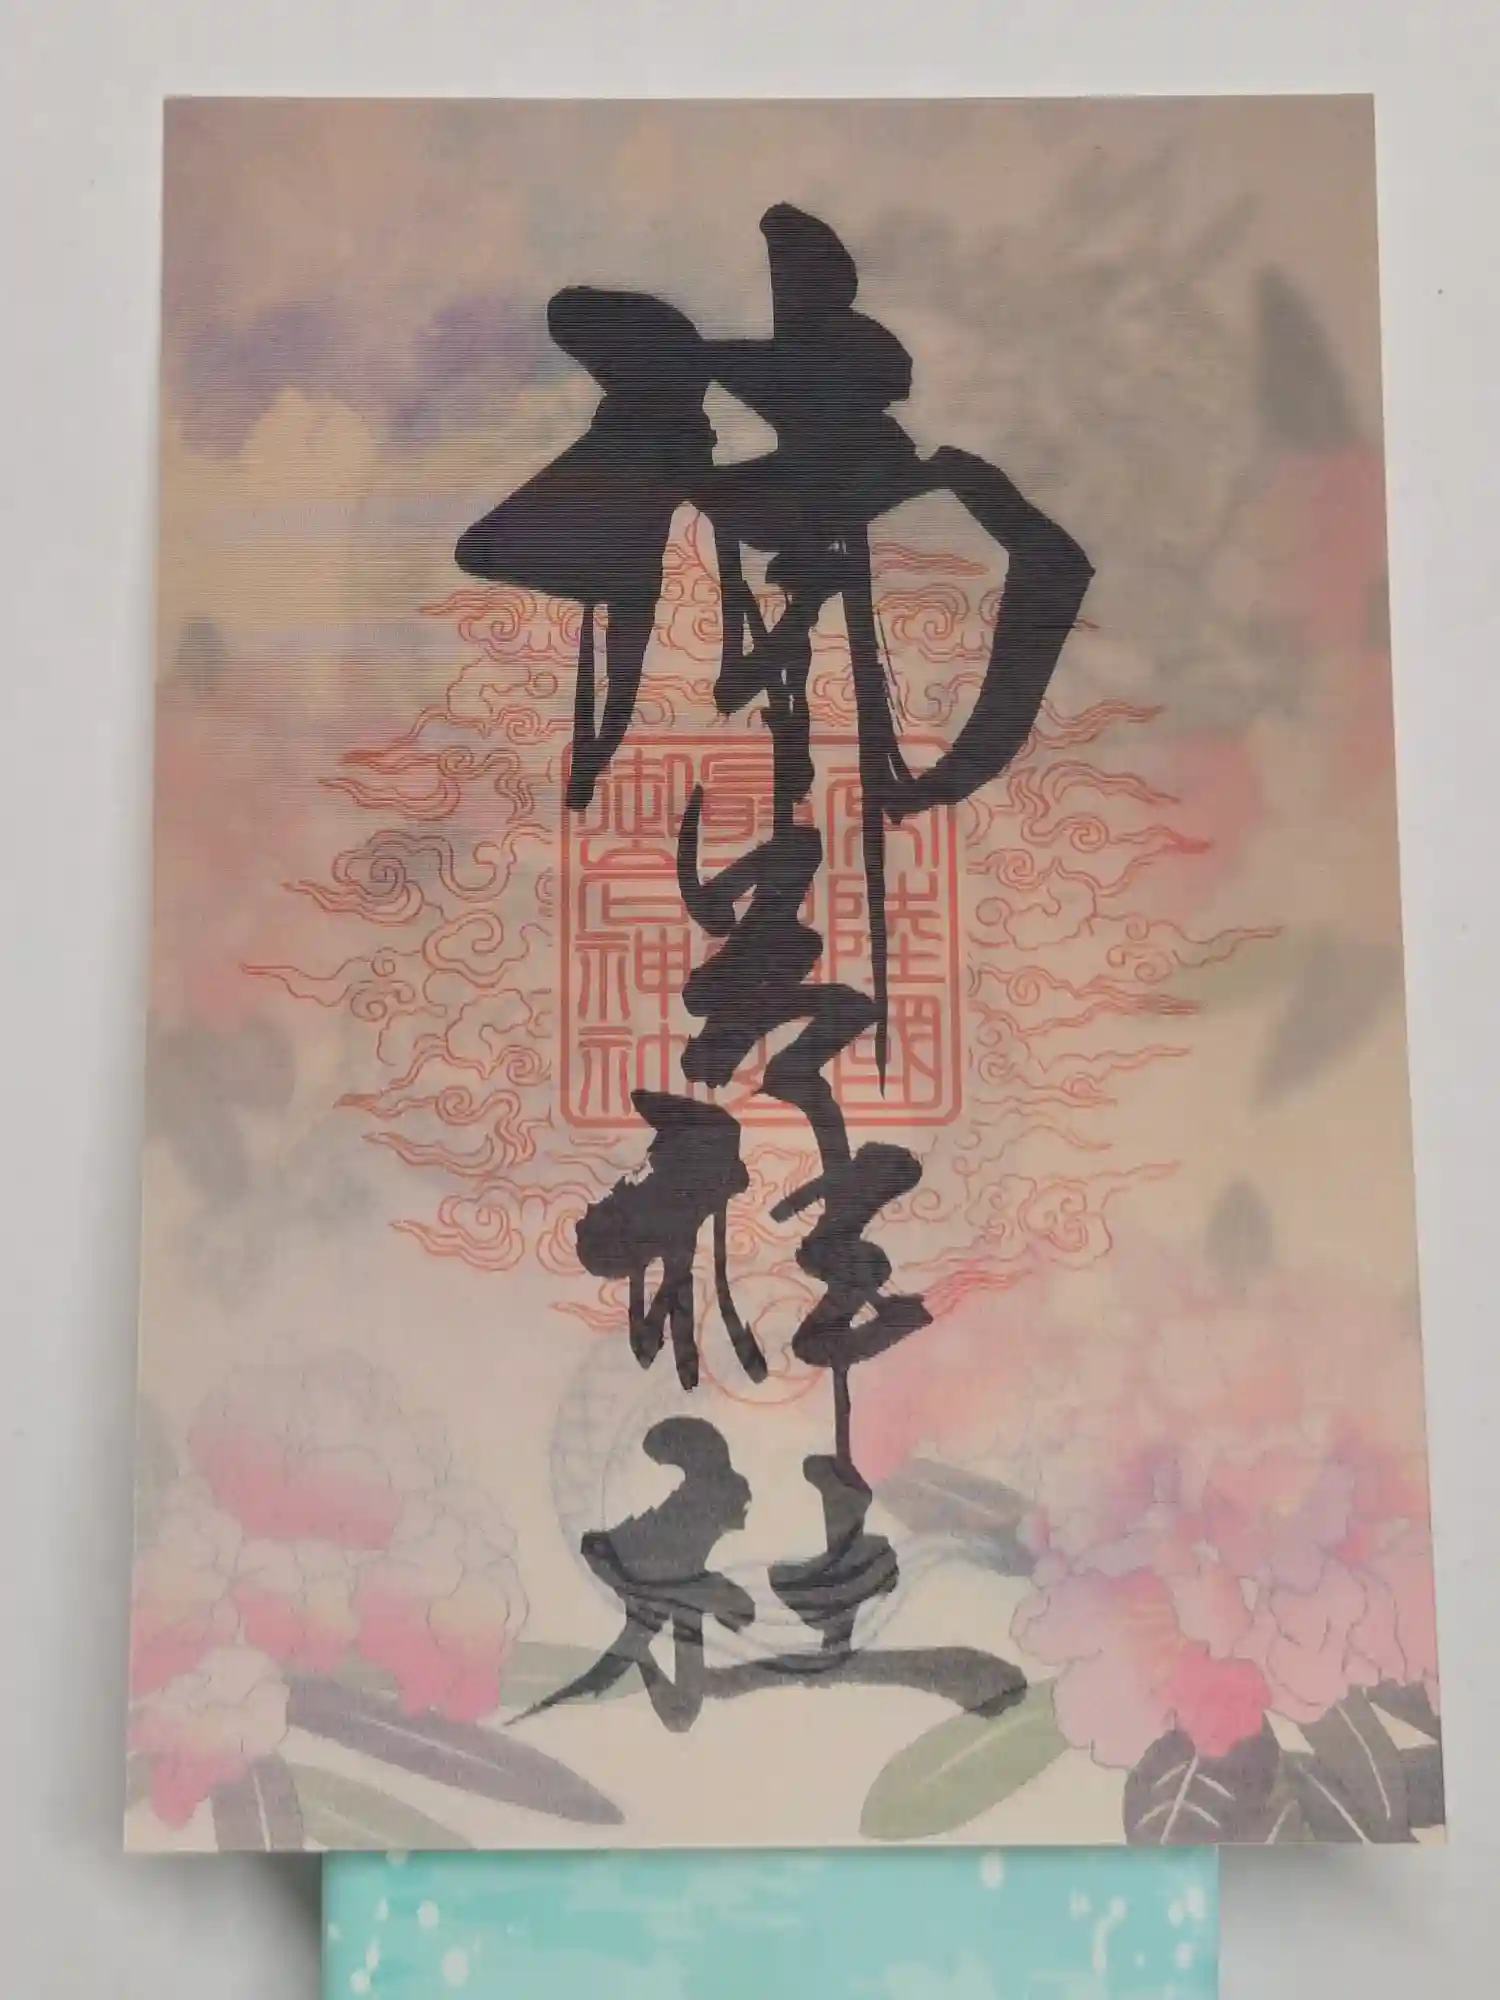 御岩神社
常陸國
御岩神社